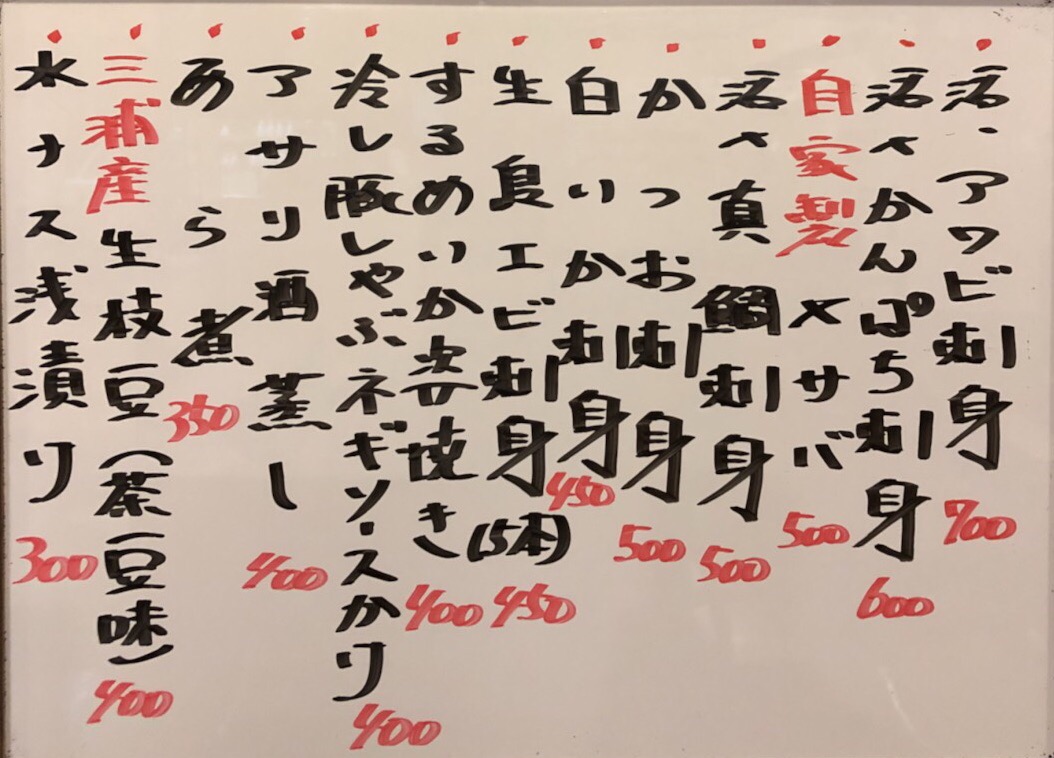 活、アワビ刺身 700
活〆かんぱち刺身 600
自家製〆サバ 500
活〆真鯛刺身 500
かつお刺身 500
白いか刺身 450
生島エビ刺身(5本) 450
するめいか姿焼き 400
冷し豚しゃぶネギソースかけ 400
アサリ酒蒸し 400
あら煮 350
三浦産生枝豆(茶豆味) 400
水ナス浅漬け 300